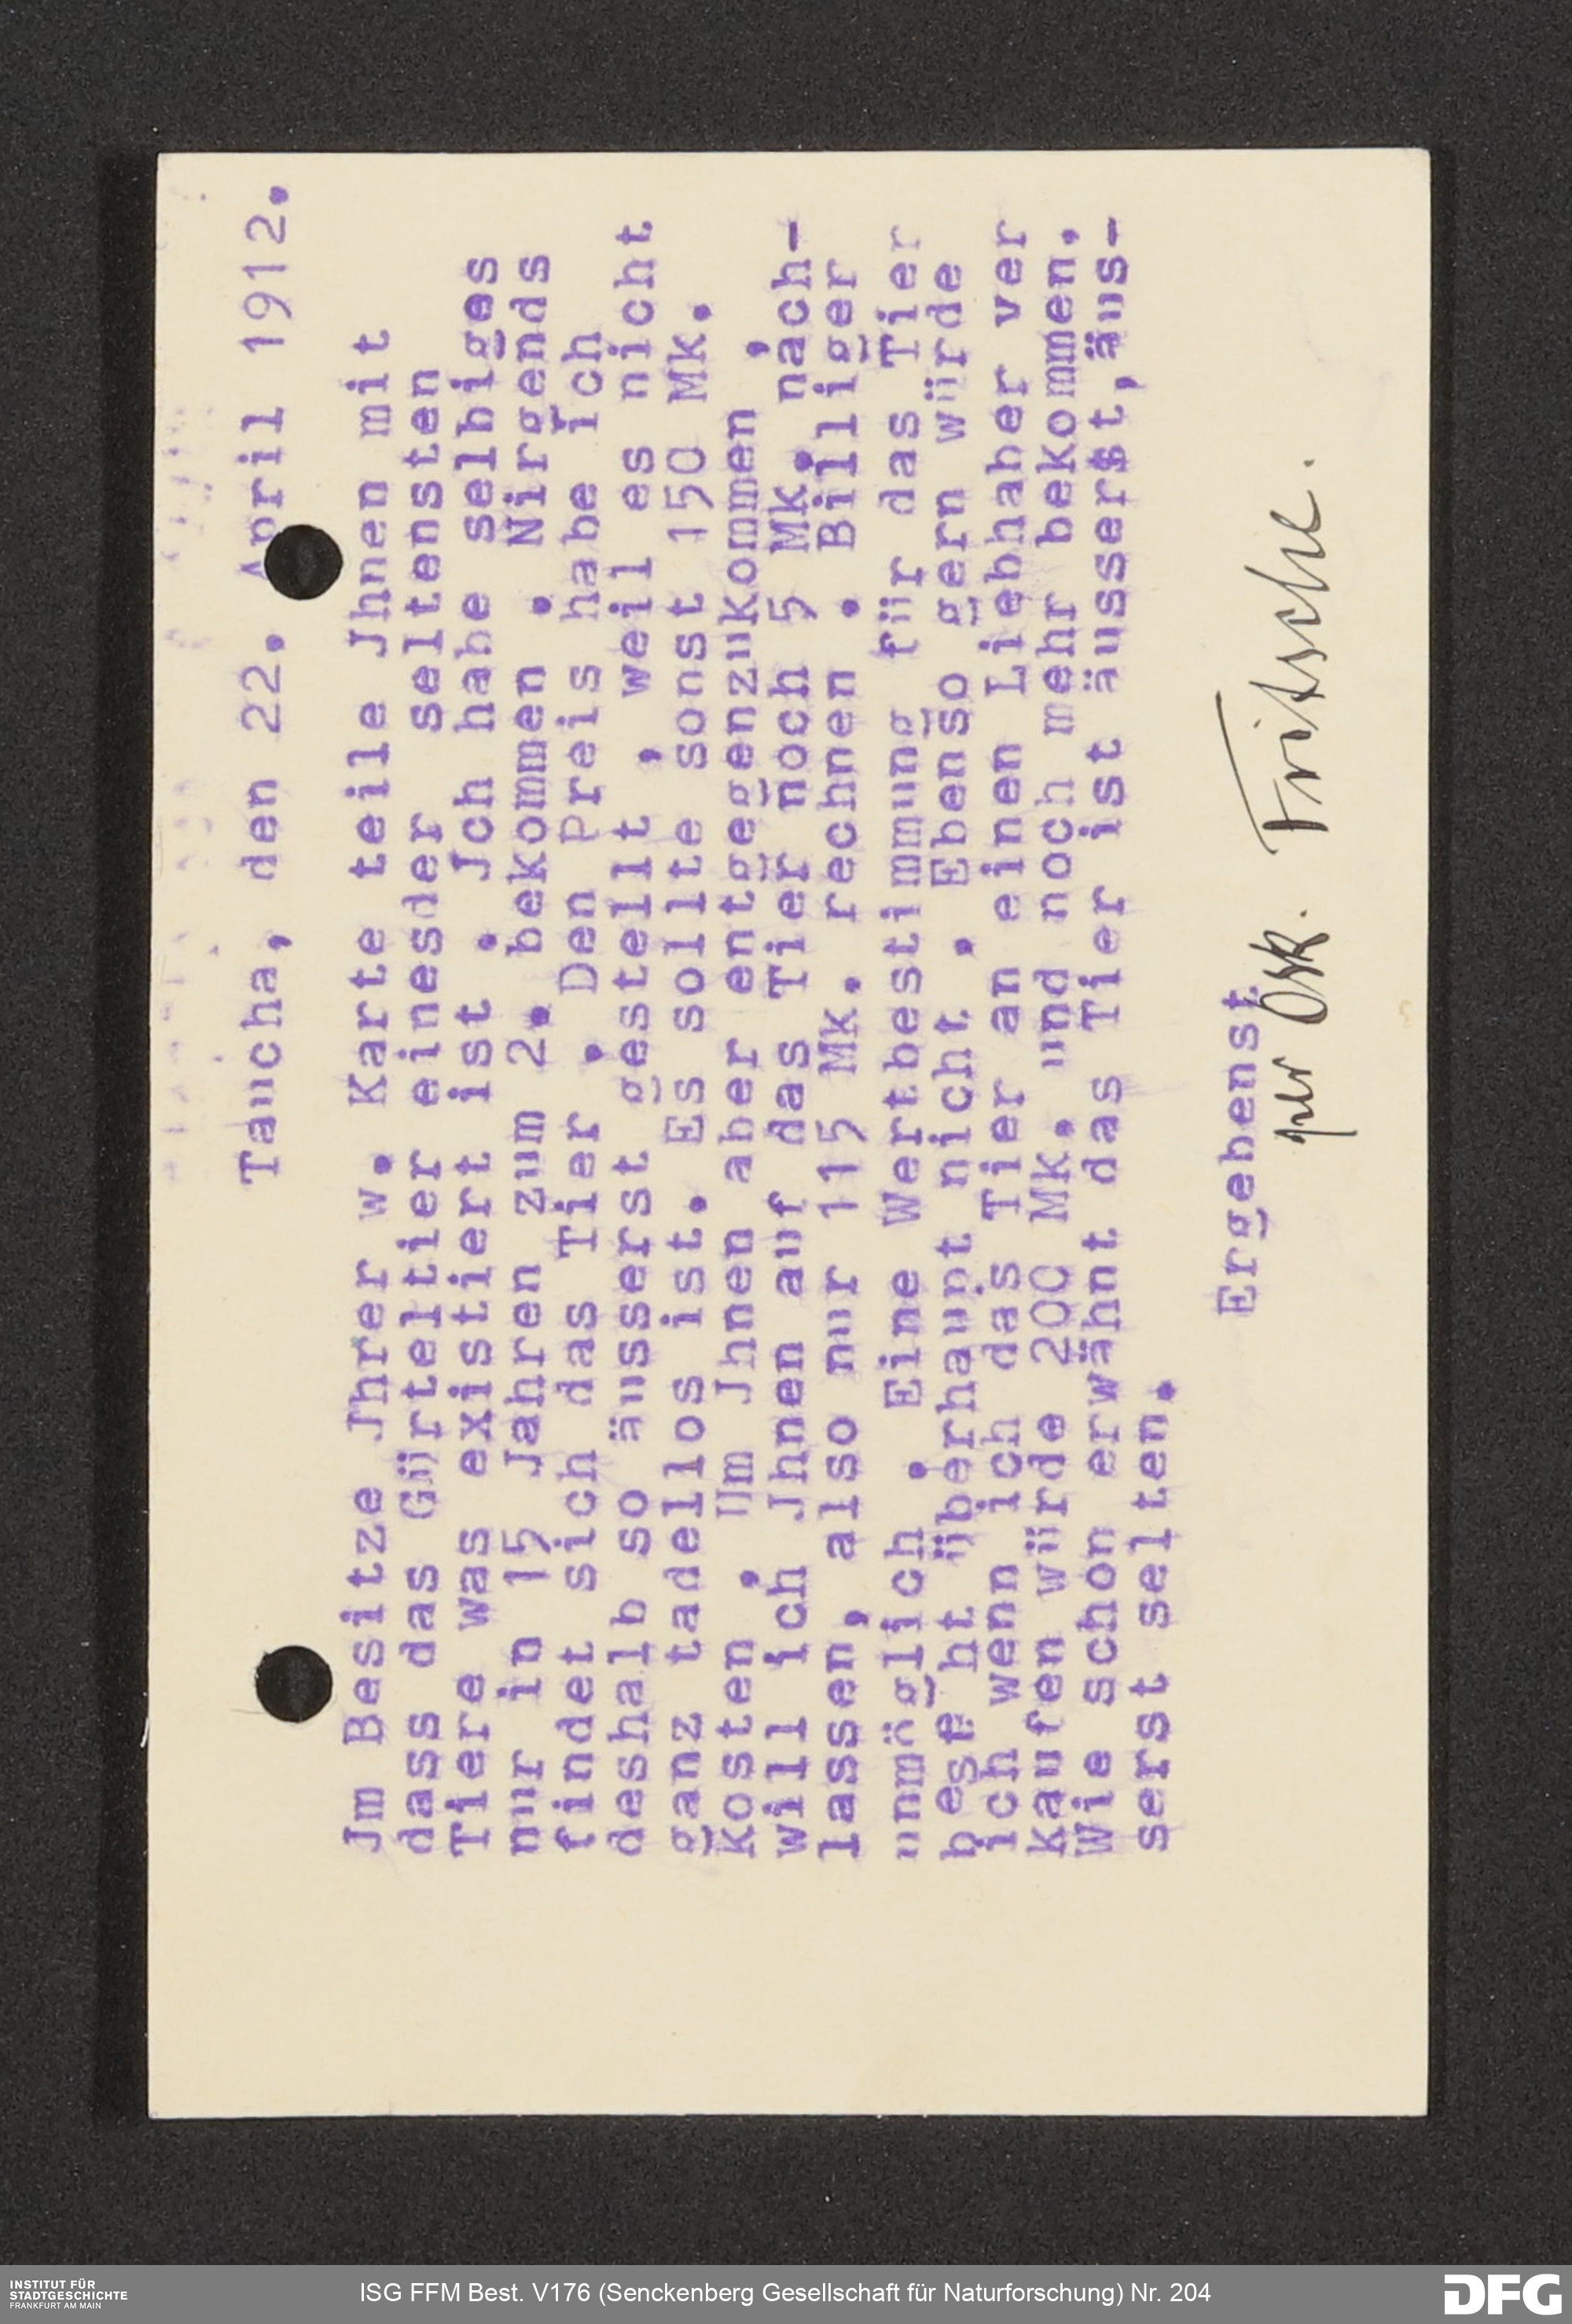 Taucha, den 22. April 1912.
Jm Besitze Jhrer w. Karte teile Jhnen mit
dass das Gürteltier einesder seltensten
Tiere was existiert ist . Jch habe selbiges
nur in 15 Jahren zum 2. bekommen . Nirgends
findet sich das Tier . Den Preis habe ich
deshalb so äusserst gestellt , weil es nicht
ganz tadellos ist. Es sollte sonst 150 Mk.
Kosten , Um Jhnen aber entgegenzukommen ,
will ich Jhnen auf das Tier noch 5 Mk. nach-
lassen, also nur 115 Mk. rechnen . Billiger
unmöglich . Eine Wertbestimmung für das Tier
beste ht überhaupt nicht . Ebenso gern würde
ich wenn ich das Tier an einen Liebhaber ver
Kaufen würde 200 Mk. und noch mehr bekommen.
Wie schon erwähnt das Tier ist äusserst,äus-
serst selten.
Ergebenst
per Osk. Fritsche.
INSTITUT FÜR
STADTGESCHICHTE
FRANKFURT AM MAIN
ISG FFM Best. V176 (Senckenberg Gesellschaft für Naturforschung) Nr. 204
DFG